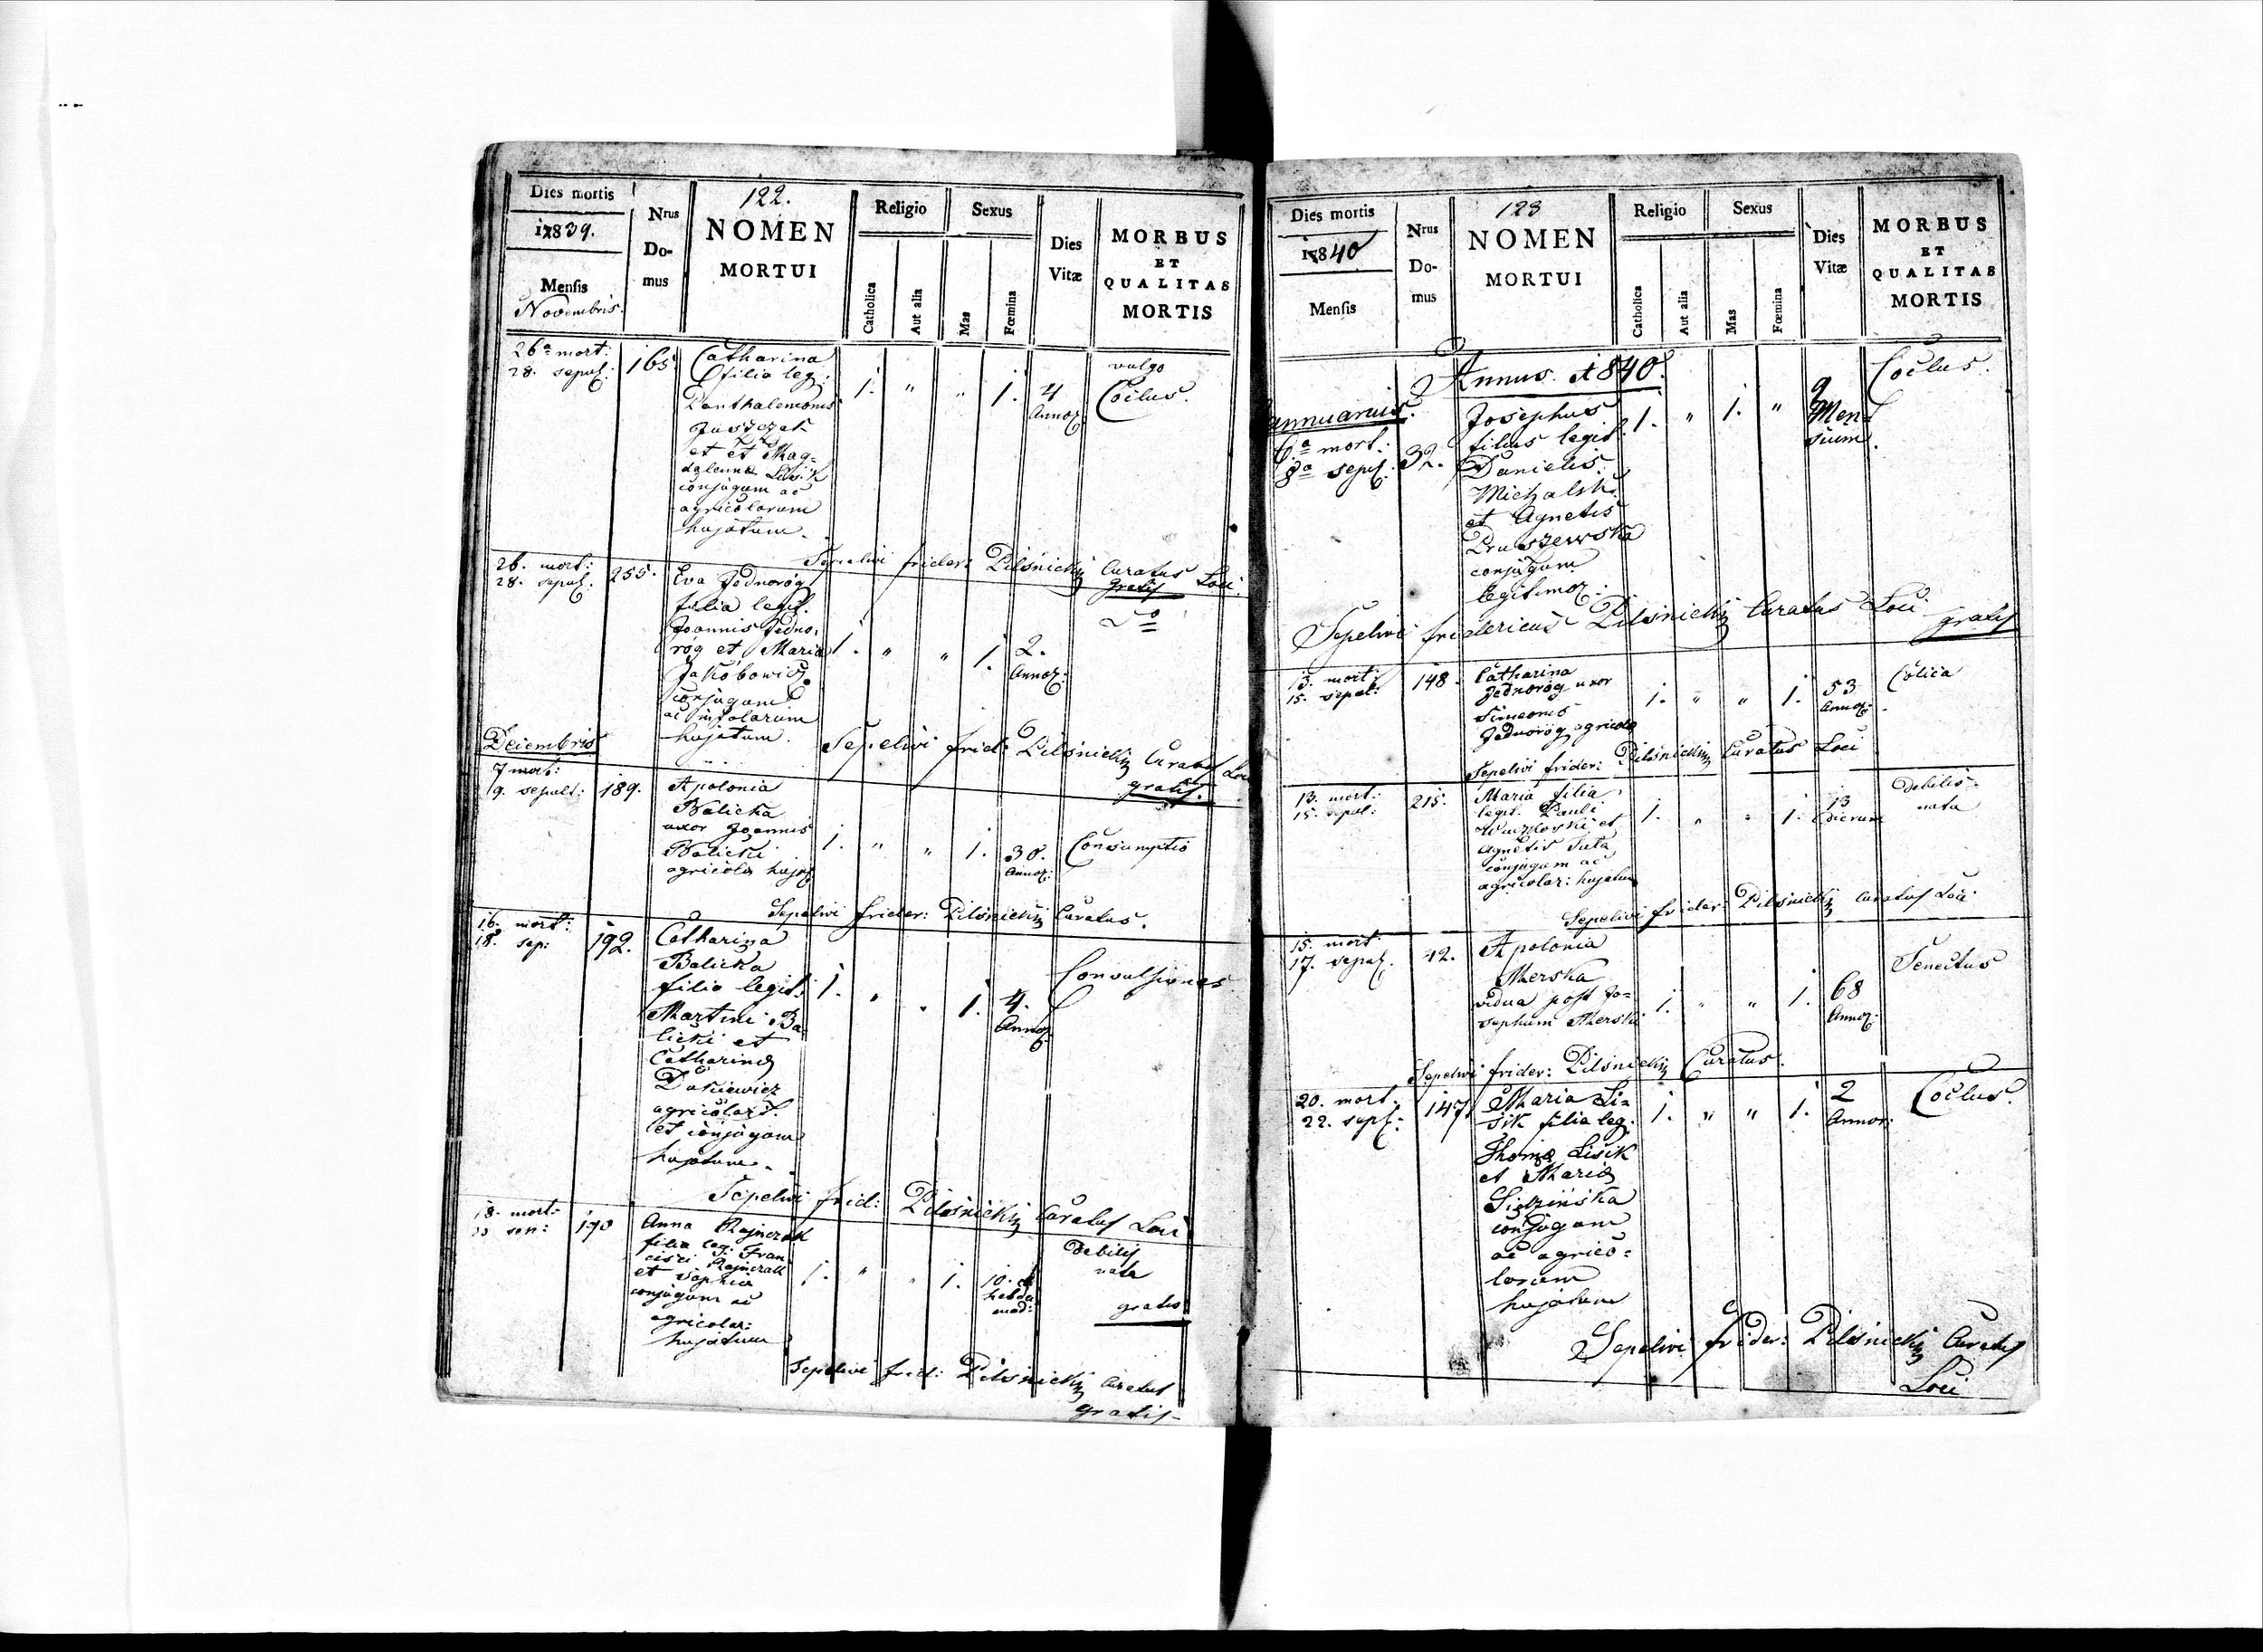 122.
Dies mortis
1839.
Mensis
Novembris.
Nrus
Do-
mus
NOMEN
MORTUI
Religio
Catholica
Aut alia
Sexus
Mas
Fœmina
Dies
Vitæ
MORBUS
ET
QUALITAS
MORTIS
26a mort:
28. sepul:
165
Catharina
filia leg:
Panthalemonis
Juszczak
et et Mag=
dalenna Lisik
conjugum ac
agricolarum
hujatum.
1. " " 1.
4
Annoz
vulgo
Coctus.
Sepelivi frider: Pilsnickij Curatus Loci.
Gratis
26. mort:
28. sepul.
255.
Eva Jednoróg
filia legit.
Joannis Jedno,
róg et Maria
Jakóbowicz
conjugum
ac inpolarum
hujatum.
1. " " 1.
2.
Annoz:
Do
Sepelivi frid: Pilsnickij Curatus Loci
gratis.
Decembris
7 mort:
9. sepult:
189.
Apolonia
Balicka
uxor Joannis
Balicki
agricola hujat
1. " " 1.
30.
Annoz:
Consumptio
Sepelivi frider: Pilsnickij Curatus.
16. mort:
18. sep:
192.
Catharina
Balicka
filia legit:
Martini Ba
licki et
Catharina
Dakiewicz
agricolar.
et conjugum
hujatum.
1. " " 1.
4.
Annoz
Convulsiones
Sepelivi frid: Pilsnickij Curatus Loci
18. mort:
sep:
190
Anna Rajnczak
filia leg: Fran
cisci Rajnczak
et Sophia
conjugum ac
agricolar:
hujatum
1. " " 1.
10.
hebdo
mad:
Debilis
nata
gratis
Sepelivi frid: Pilsnickij Curatus
gratis
123
Dies mortis
1840
Mensis
Nrus
Do-
mus
NOMEN
MORTUI
Religio
Catholica
Aut alia
Sexus
Mas
Fœmina
Dies
Vitæ
MORBUS
ET
QUALITAS
MORTIS
Annus 1840.
Januarius.
6a mort:
8a sepul:
32.
Josephus
filius legit.
Danielis
Michalski
et Agnetis
Pruszewska
conjugum
legitimoz.
1. " 1. "
9
Men
sium.
Coctus.
Sepelivi fridericus Pilsnickij Curatus Loci
gratis
13. mort:
15. sepul:
148.
Catharina
Jednoróg uxor
Simeonis
Jednoróg agricola
1. " " 1.
53
Annoz:
Colica
Sepelivi frider: Pilsnickij Curatus Loci
13. mort:
15. sepul:
215.
Maria filia
legit. Pauli
et
Agnetis Suta
conjugum ac
agricolar: hujatum
1. " " 1.
13
dierum
Debilis
nata
Sepelivi frider: Pilsnickij Curatus Loci
15. mort:
17. sepul.
42.
Apolonia
Mierska
vidua post Jo=
sephum Mierski
1. " " 1.
68
Annoz:
Senectus
Sepelivi frider: Pilsnickij Curatus.
20. mort.
22. sepl:
147.
Maria Li=
sik filia leg.
Thoma Lisik
et Maria
Sidzińska
conjugum
ac agrico=
larum
hujatum
1. " " 1.
2
Annor:
Coctus.
Sepelivi frider: Pilsnickij Curatus
Loci